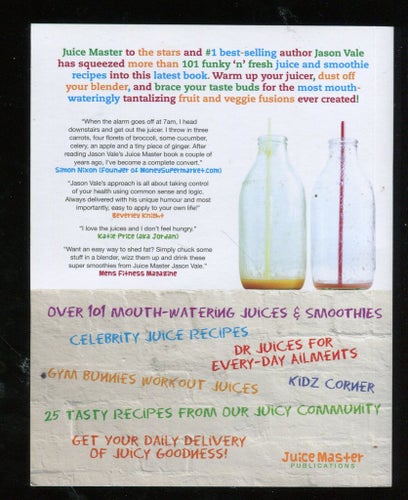 Juice Master to the stars and #1 best-selling author Jason Vale
has squeezed more than 101 funky 'n' fresh juice and smoothie
recipes into this latest book. Warm up your juicer, dust off
your blender, and brace your taste buds for the most mouth-
wateringly tantalizing fruit and veggie fusions ever created!
"When the alarm goes off at 7am, I head
downstairs and get out the juicer. I throw in three
carrots, four florets of broccoli, some cucumber,
celery, an apple and a tiny piece of ginger. After
reading Jason Vale's Juice Master book a couple of
years ago, I've become a complete convert."
Simon Nixon (Founder of MoneySupermarket.com)
"Jason Vale's approach is all about taking control
of your health using common sense and logic.
Always delivered with his unique humour and most
importantly, easy to apply to your own life!"
Beverley Knight
"I love the juices and I don't feel hungry."
Katie Price (aka Jordan)
"Want an easy way to shed fat? Simply chuck some
stuff in a blender, wizz them up and drink these
super smoothies from Juice Master Jason Vale."
Mens Fitness Magazine
OVER 101 MOUTH-WATERING JUICES & SMOOTHIES
CELEBRITY JUICE RECIPES
DR JUICES FOR
EVERY-DAY AILMENTS
GYM BUNNIES WORKOUT JUICES
KIDZ CORNER
25 TASTY RECIPES FROM OUR JUICY COMMUNITY
GET YOUR DAILY DELIVERY
OF JUICY GOODNESS!
Juice Master
PUBLICATIONS